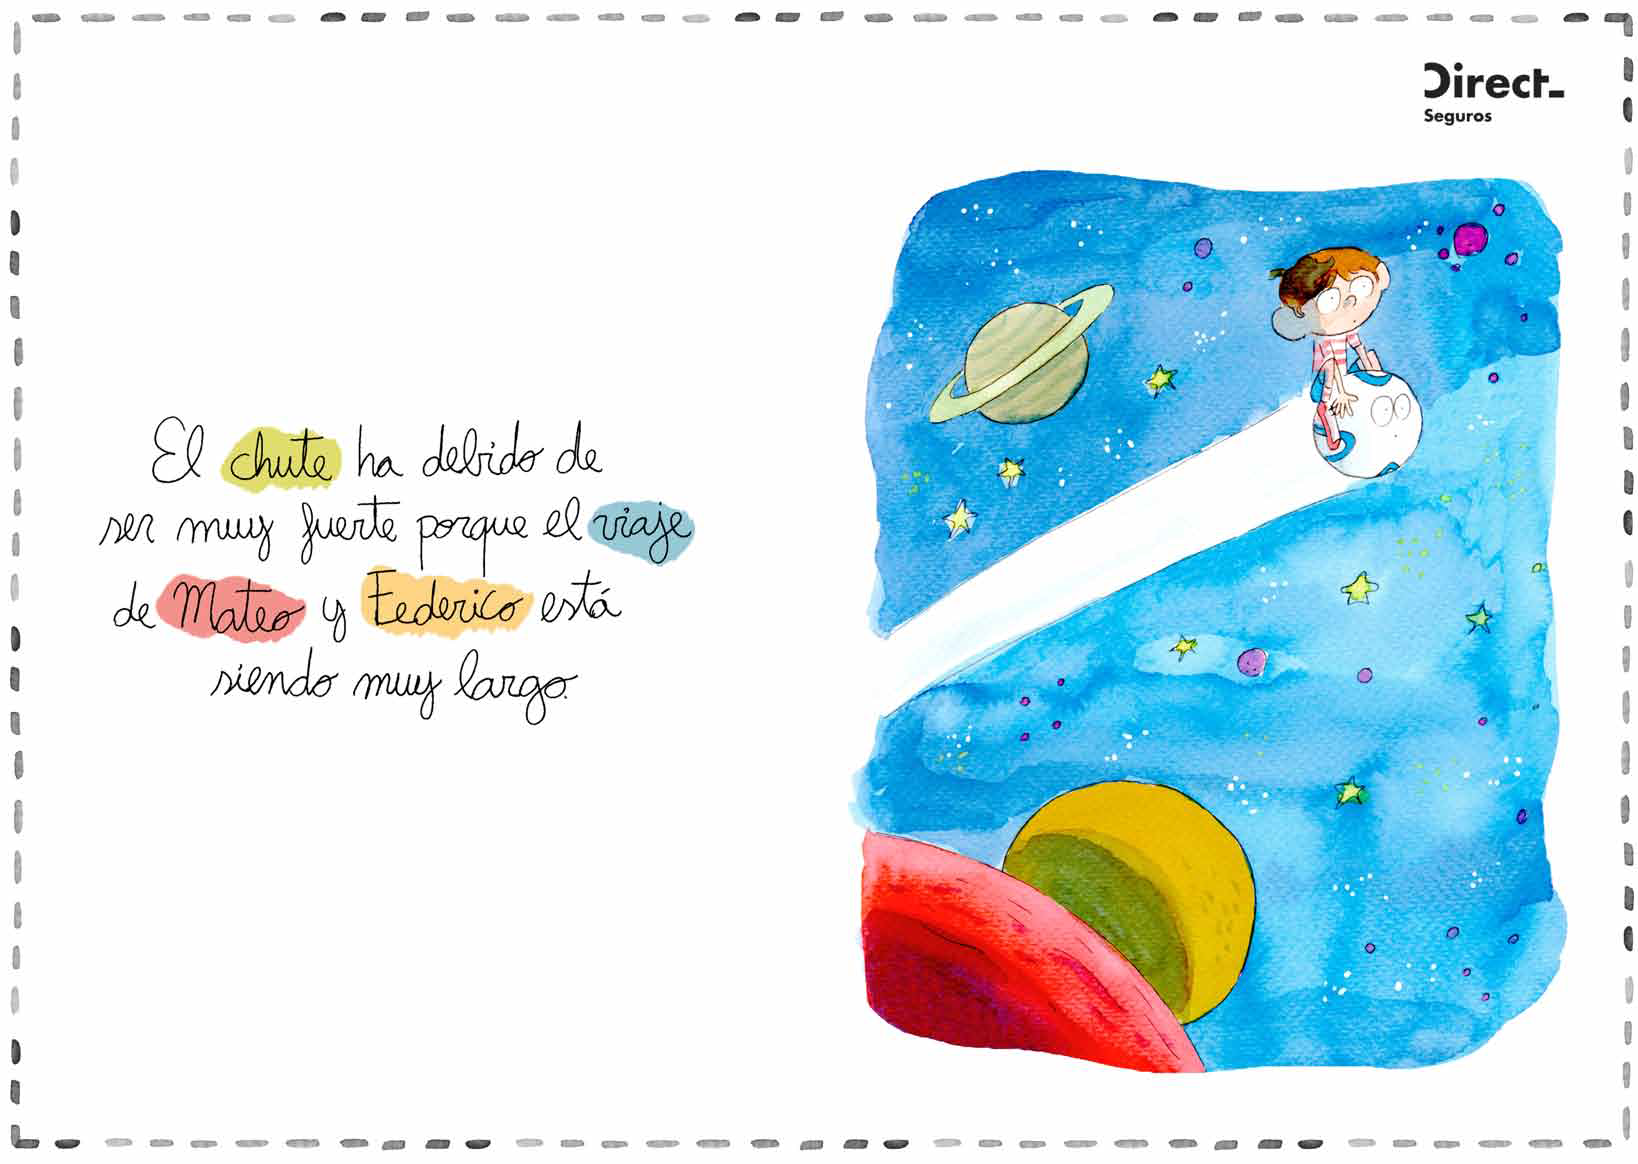 Direct_
Seguros
El chute ha debido de
ser muy fuerte porque el viaje
de Mateo y Federico está
siendo muy largo.